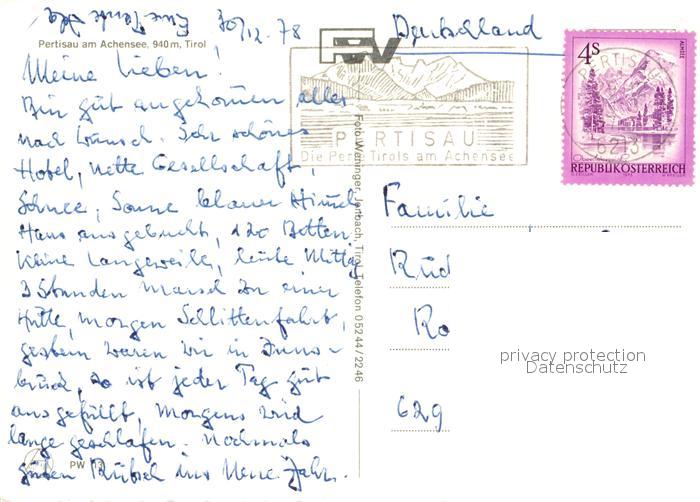 30/12.78
Deutschland
Pertisau am Achensee, 940 m, Tirol
Meine Lieben!
Bin gut angekommen alles
nach Wunsch. Sehr schönes
Hotel, nette Gesellschaft,
Schnee, Sonne blauer Himmel
Haus ausgebucht, 120 Betten
keine Langeweile, heute Mittag
3 Stunden Marsch zu einer
Hütte, morgen Schlittenfahrt,
gestern waren wir in Inns-
bruck, so ist jeder Tag gut
ausgefüllt, morgens wird
lange geschlafen. Nochmals
guten Rutsch ins Neue Jahr.
Eure Tante
PW 13
Foto Weninger, Jenbach, Tirol, Telefon 05244/2246
PERTISAU
Die Perle Tirols am Achensee
4S
REPUBLIK ÖSTERREICH
PERTISAU
6213
Familie
Rud
Ro
629
privacy protection
Datenschutz